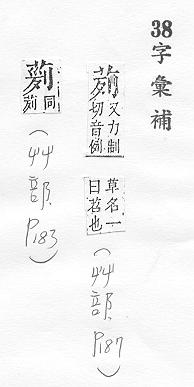 38字彙補
茢
又力制
切音例
草名一
曰苕也
(艸部P187)
同
茢
(艸部P183)